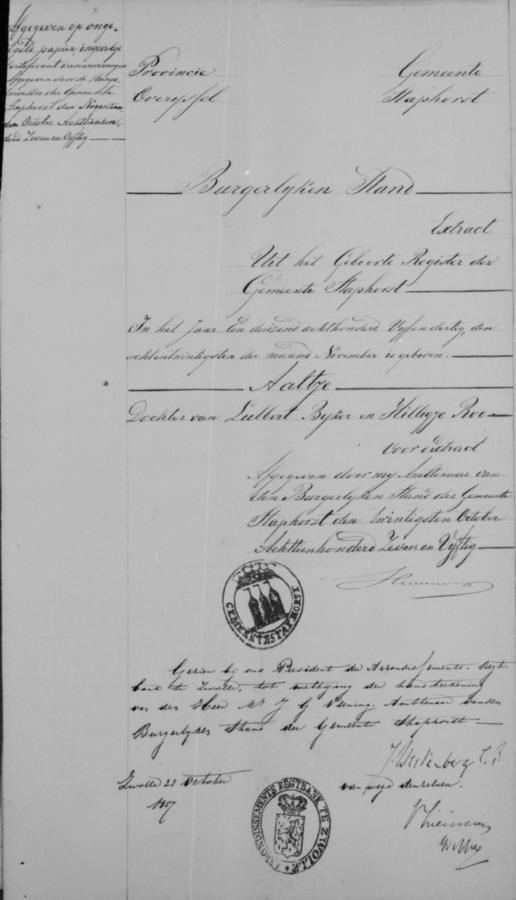 Afgegeven op onge-
zegeld papier, ingevolge
certificaat van onvermogen
afgegeven door de Burge-
meester der Gemeente
Staphorst den Negentien
den October Achttienhon-
derd Zeven en Vyftig
Provincie Gemeente
Overyssel Staphorst
Burgerlyken Stand
Extract
Uit het Geboorte Register der
Gemeente Staphorst
In het Jaar Een duizend achthonderd Vyfendertig, den
achtentwintigsten der maand November is geboren.
Aaltje
Dochter van Lubbert Byker en Hilligje Roo
Voor extract
Afgegeven door my Ambtenaar van
den Burgerlyken Stand der Gemeente
Staphorst den twintigsten October
Achttienhonderd Zeven en Vyftig
GEMEENTE STAPHORST
Gezien bij ons President der Arrondissements-Regt
bank te Zwolle, tot wettiging der handteekening
van den Heer Mr J G Ambtenaar van den
Burgerlyken Stand der Gemeente Staphorst
Zwolle 23 October
1857
van wege denzelven.
ARRONDISSEMENTS REGTBANK TE ZWOLLE